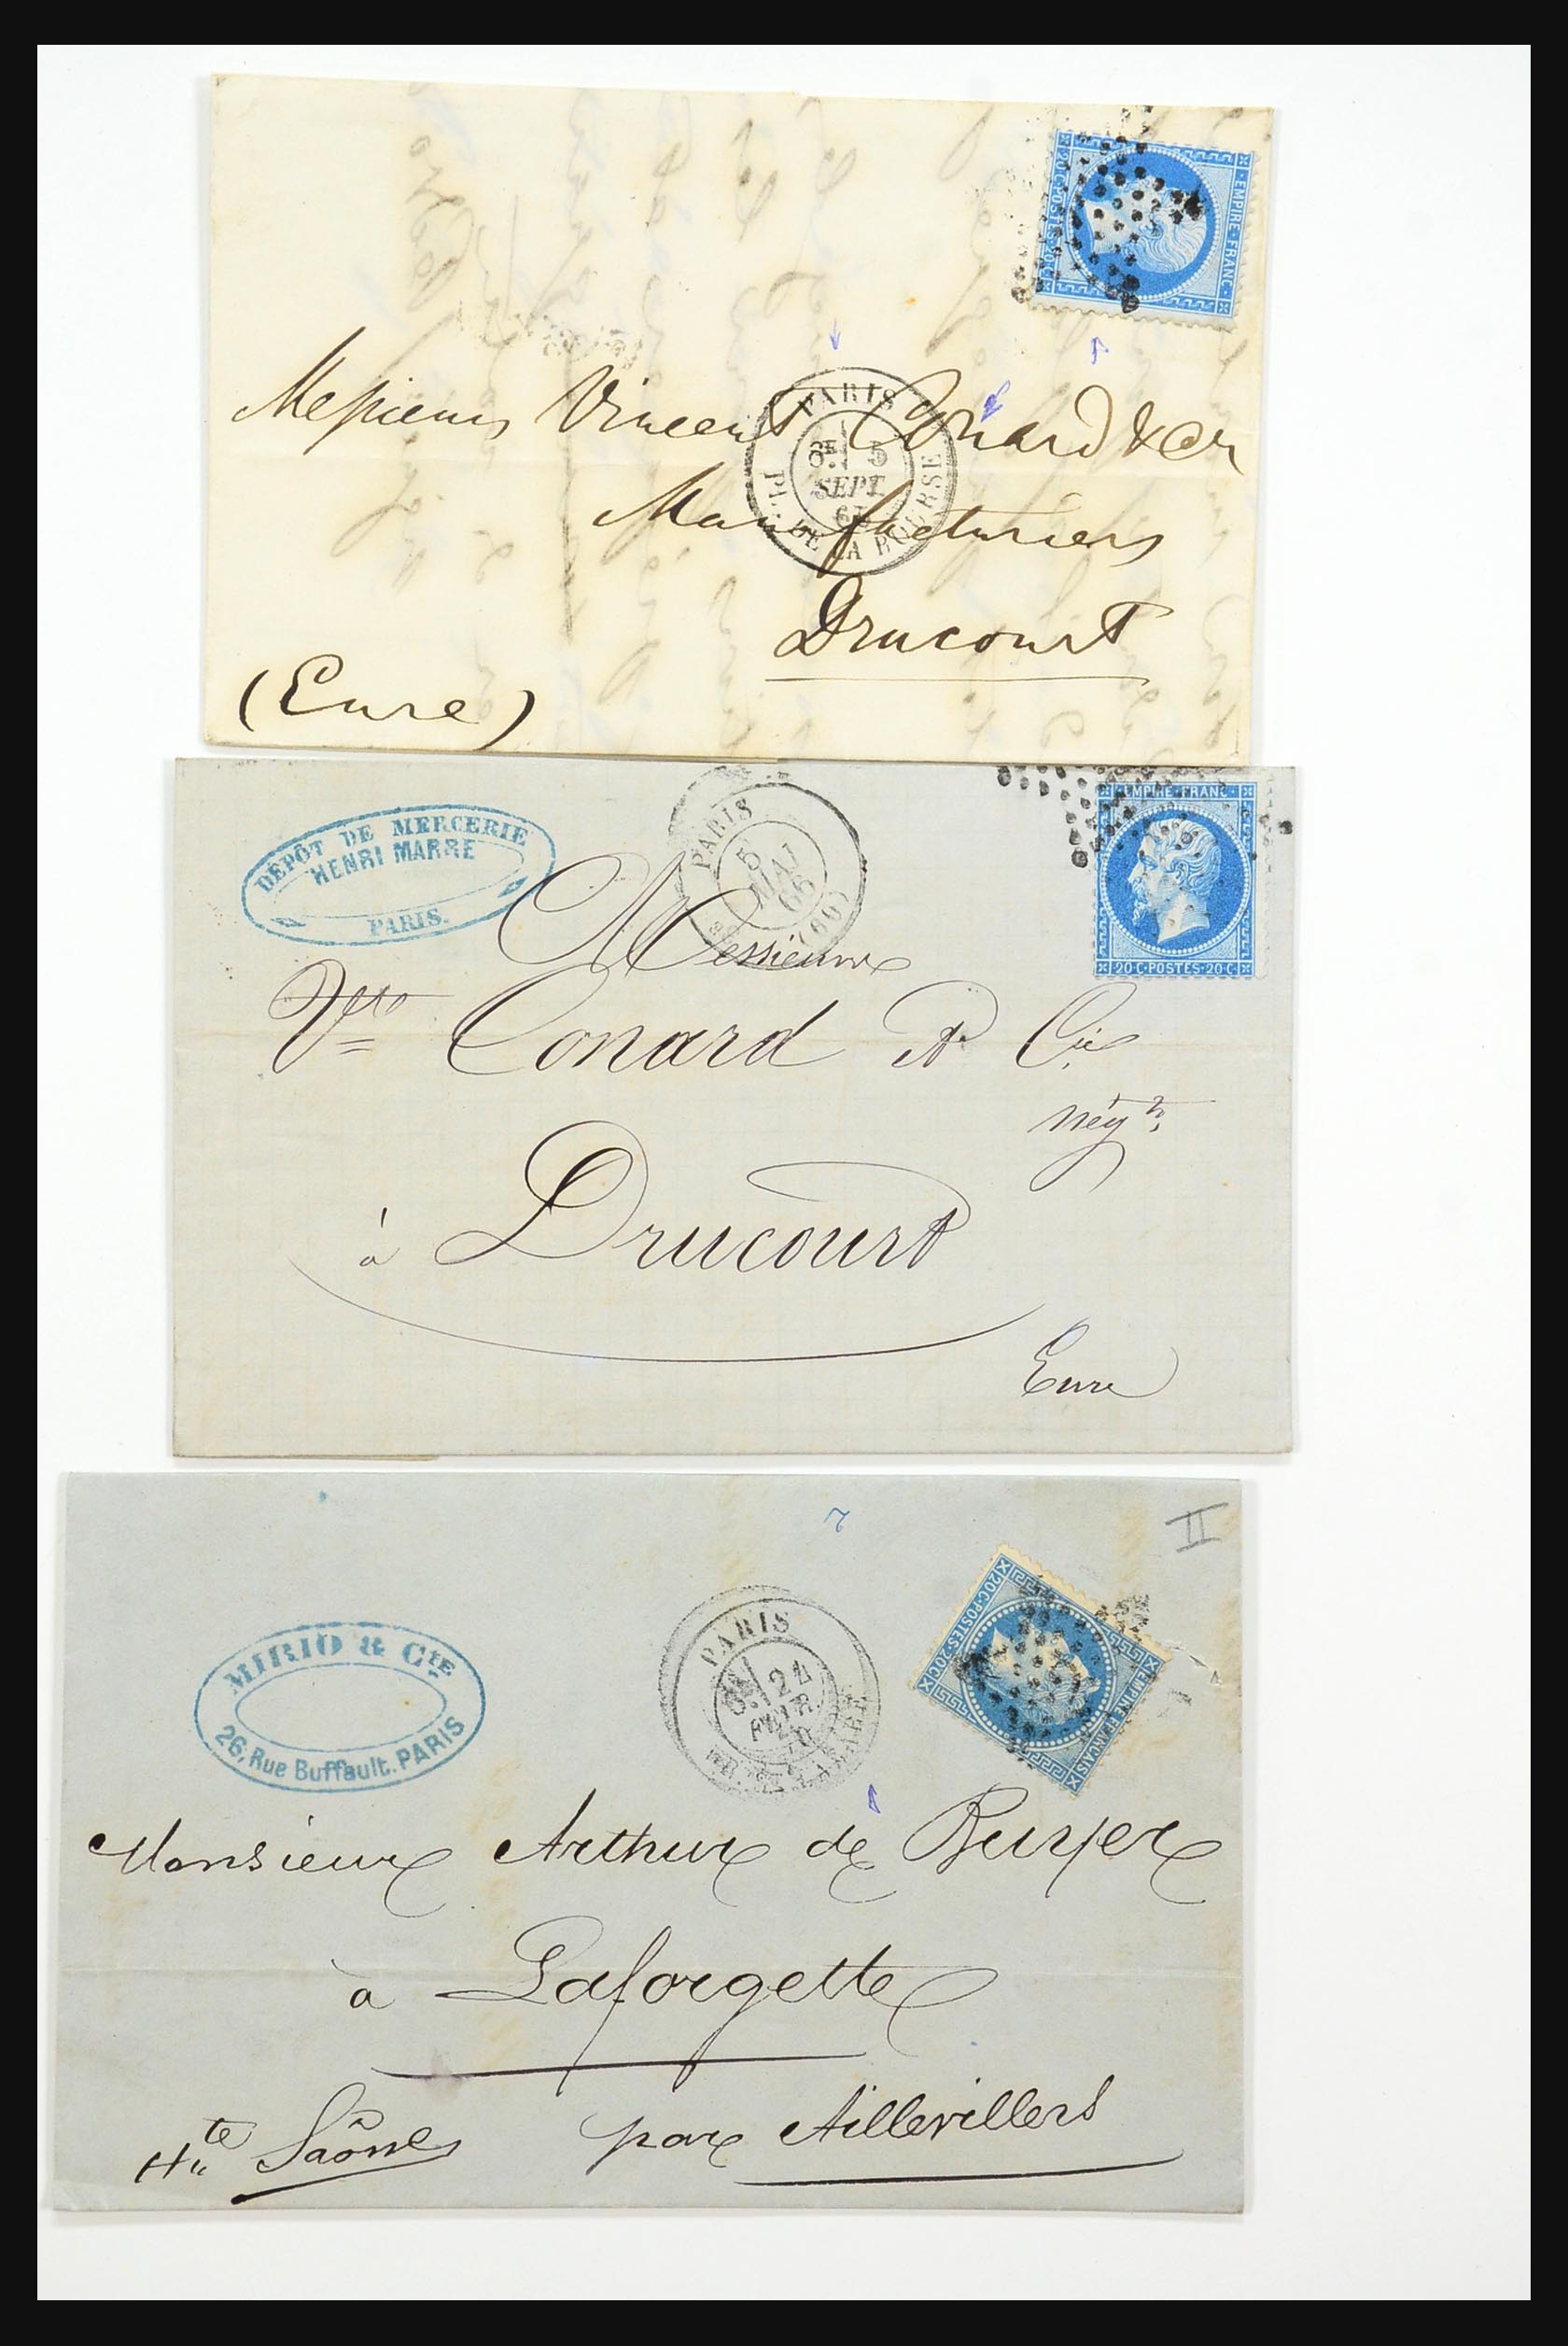 EMPIRE·FRANC·
20·C·POSTES·20·C·
Messieurs Vincent Conard & Cie
PARIS
5
SEPT.
PL. DE LA BOURSE
Manufacturiers
Drucourt
(Eure)
DÉPÔT DE MERCERIE
HENRI MARRE
PARIS.
PARIS
5
MAI
66
(60)
EMPIRE·FRANC·
20·C·POSTES·20·C·
Messieurs
Vte Conard & Cie
Négts
à Drucourt
Eure
II
MIRIO & CIE
26, Rue Buffault. PARIS
PARIS
24
FEVR.
20C·POSTES·20C
EMPIRE FRANÇAIS
Monsieur Arthur de Buyer
à Laforgette
Hte Saône par Aillevillers